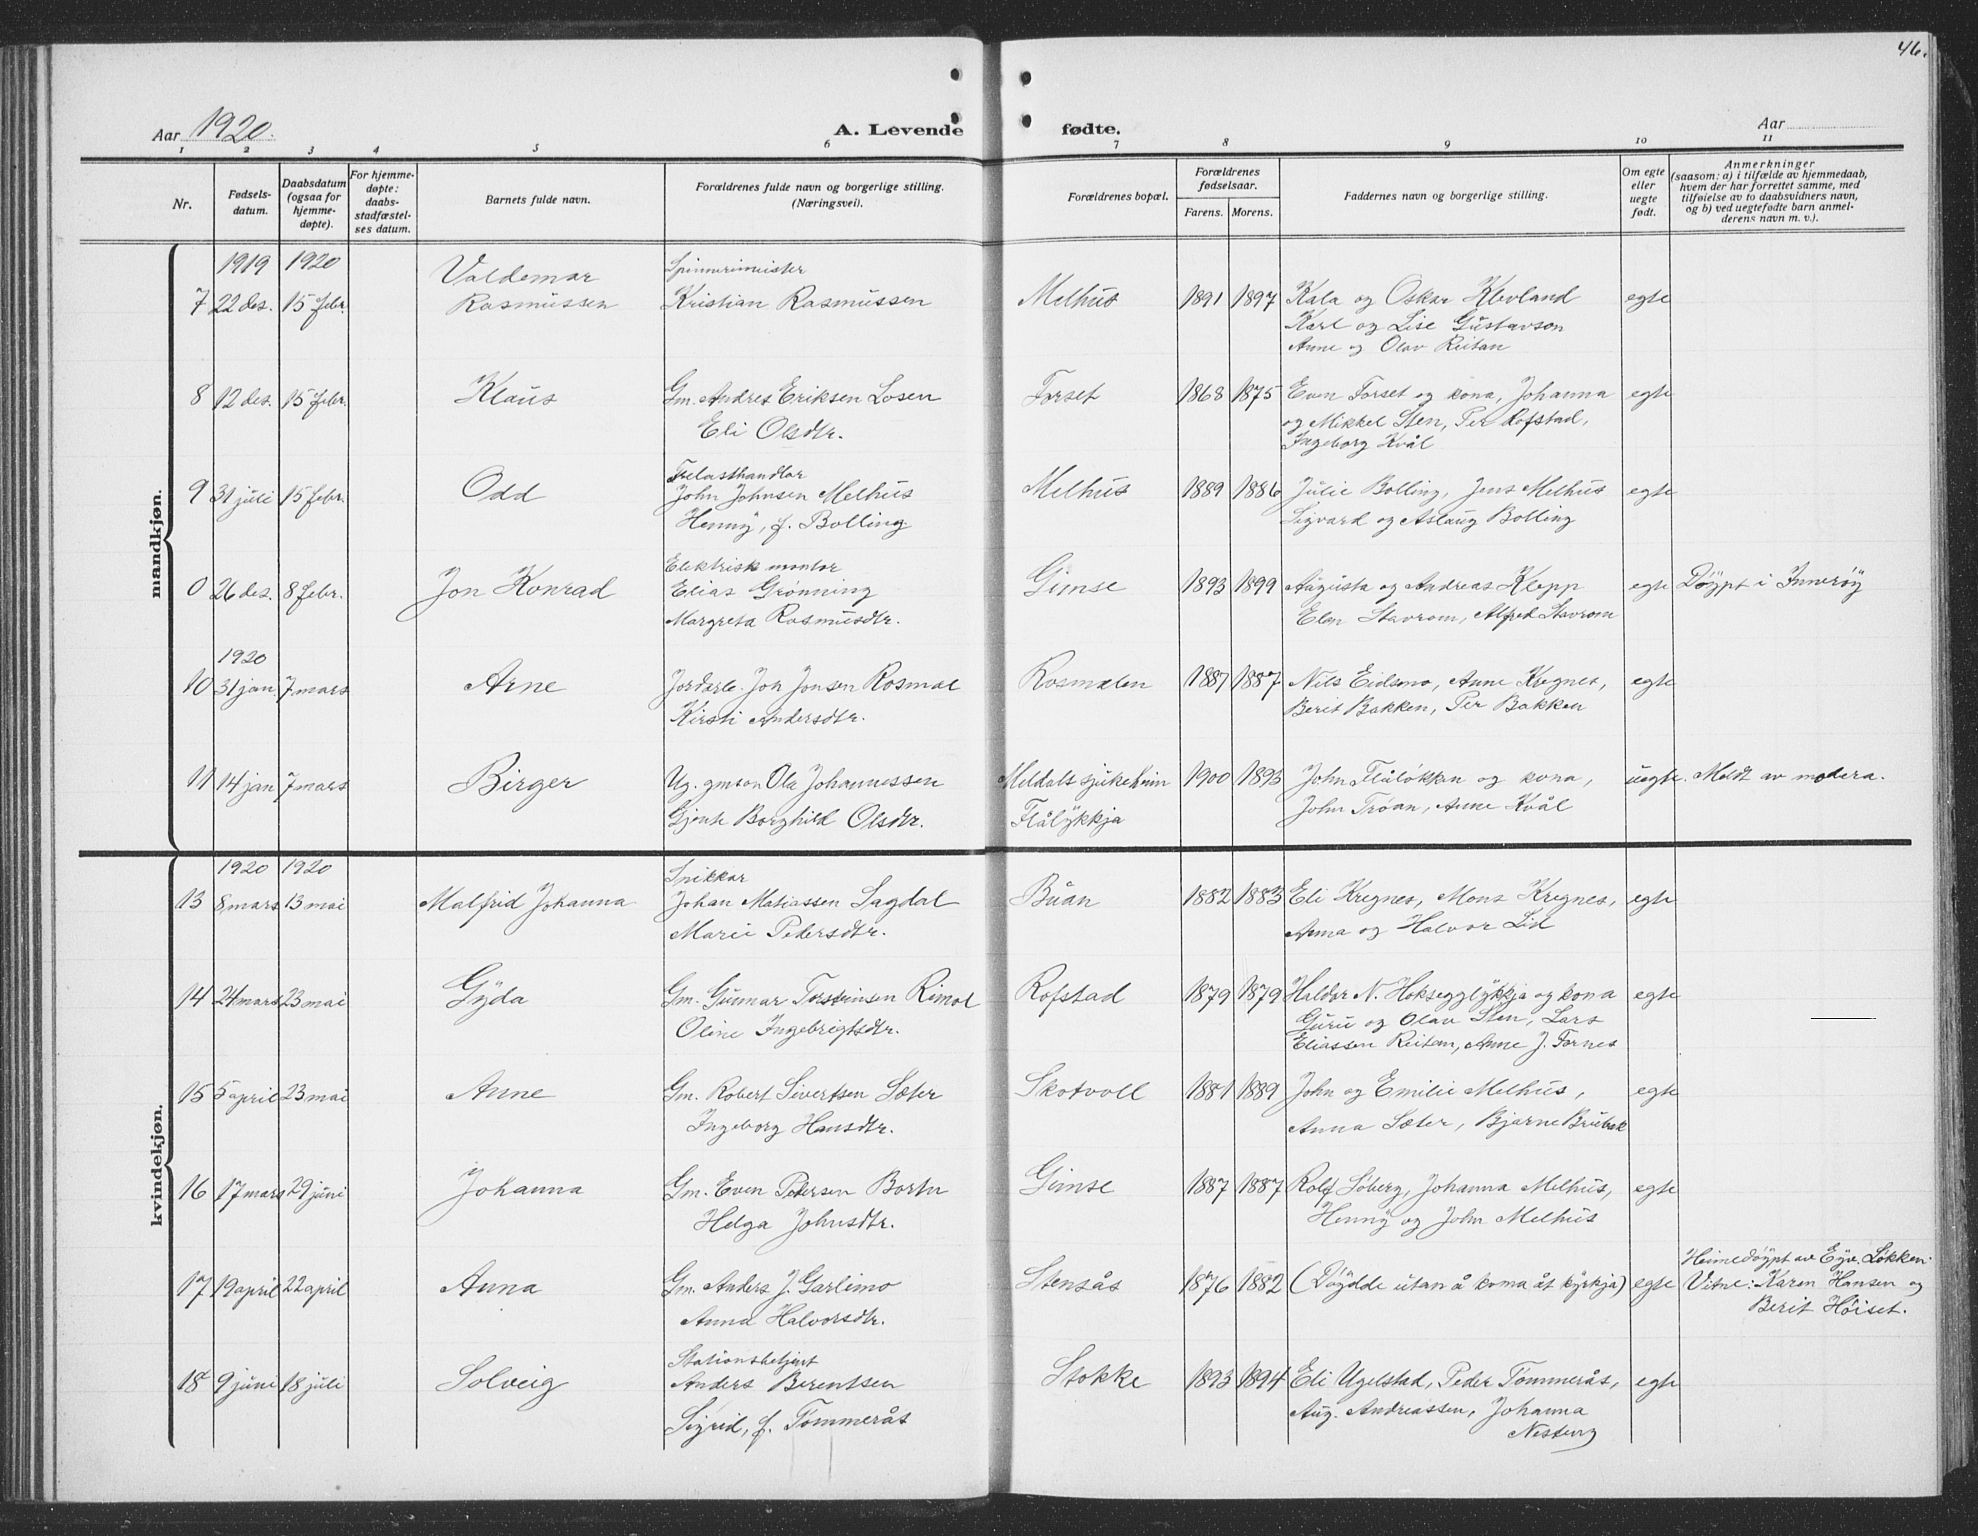 46.
Aar 1920.
A. Levende fødte.
Aar
1 2 3 4 5 6 7 8 9 10 11
Nr.
Fødsels-
datum.
Daabsdatum
(ogsaa for
hjemme-
døpte).
For hjemme-
døpte:
daabs-
stadfæstel-
ses datum.
Barnets fulde navn.
Forældrenes fulde navn og borgerlige stilling.
(Næringsvei).
Forældrenes bopæl.
Forældrenes
fødselsaar.
Farens. Morens.
Faddernes navn og borgerlige stilling.
Om egte
eller
uegte
født.
Anmerkninger
(saasom: a) i tilfælde av hjemmedaab,
hvem der har forrettet samme, med
tilføielse av to daabsvidners navn,
og b) ved uegtefødte barn anmel-
derens navn m. v.).
mandkjøn.
1919 1920 Valdemar Spinnerimeister
7 22 des. 15 febr. Rasmussen Kristian Rasmussen Melhus 1891 1897 Kala og Oskar Klevland egte
Karl og Lise Gustavson
Anne og Olav Reitan
8 12 des. 15 febr. Klaus Gm. Andres Eriksen Losen Forset 1868 1875 Even Forset og kona, Johanna egte
Eli Olsdtr. og Mikkel Sten, Per Rofstad,
Ingeborg Kvål
Trelasthandlar
9 31 juli 15 febr. Odd John Johnsen Melhus Melhus 1889 1886 Julie Bolling, Jens Melhus egte
Henny, f. Bolling Sigvard og Aslaug Bolling
Elektrisk montør
0 26 des. 8 febr. Jon Konrad Elias Grønning Gimse 1893 1899 Augusta og Andreas Klepp egte Døypt i Inderøy
Margreta Rasmusdtr. Elen Stavrom, Alfred Stavrom
1920
10 31 jan 7 mars Arne Jordarb. Joh Jonsen Rosmæl Rosmælen 1887 1887 Nils Eidsmo, Anne Kregnes, egte
Kirsti Andersdtr. Berit Bakken, Per Bakken
11 14 jan 7 mars Birger Ug. gmson Ola Johannessen Meldals sjukeheim 1900 1893 John Flåløkken og kona, uegte. Meldt av modera.
Gjente Borghild Olsdtr. Flålykkja John Trøan, Anne Kvål
kvindekjøn.
1920 1920 Snikkar
13 8 mars 13 mai Malfrid Johanna Johan Matiassen Sagdal Buan 1882 1883 Eli Kregnes, Mons Kregnes, egte
Marie Pedersdtr. Anna og Halvor Lid
14 24 mars 23 mai Gyda Gm. Gunnar Torsteinsen Rimol Rofstad 1879 1879 Haldor N. Hokseggylykkja og kona egte
Oline Ingebrigtsdtr. Guru og Olav Sten, Lars
Eliassen Reitan, Anne J. Fornes
15 5 april 23 mai Anne Gm. Robert Sivertsen Sæter Skotvoll 1881 1889 John og Emilie Melhus, egte
Ingeborg Hansdtr. Anna Sæter, Bjarne Brubak
16 17 mars 29 juni Johanna Gm. Even Petersen Borten Gimse 1887 1887 Rolf Søberg, Johanna Melhus, egte
Helga Johnsdtr. Henny og John Melhus
Heimedøypt av Eyv. Løkken.
17 19 april 22 april Anna Gm. Anders J. Garlimo Stensås 1876 1882 (Døydde utan å koma åt kyrkja) egte Vitne: Karen Hansen og
Anna Halvorsdtr. Berit Höiset.
Stationsbetjent
18 9 juni 18 juli Solveig Anders Berentsen Stokke 1893 1894 Eli Ugelstad, Peder Tømmerås, egte
Sigrid, f. Tømmerås Aug. Andreassen, Johanna